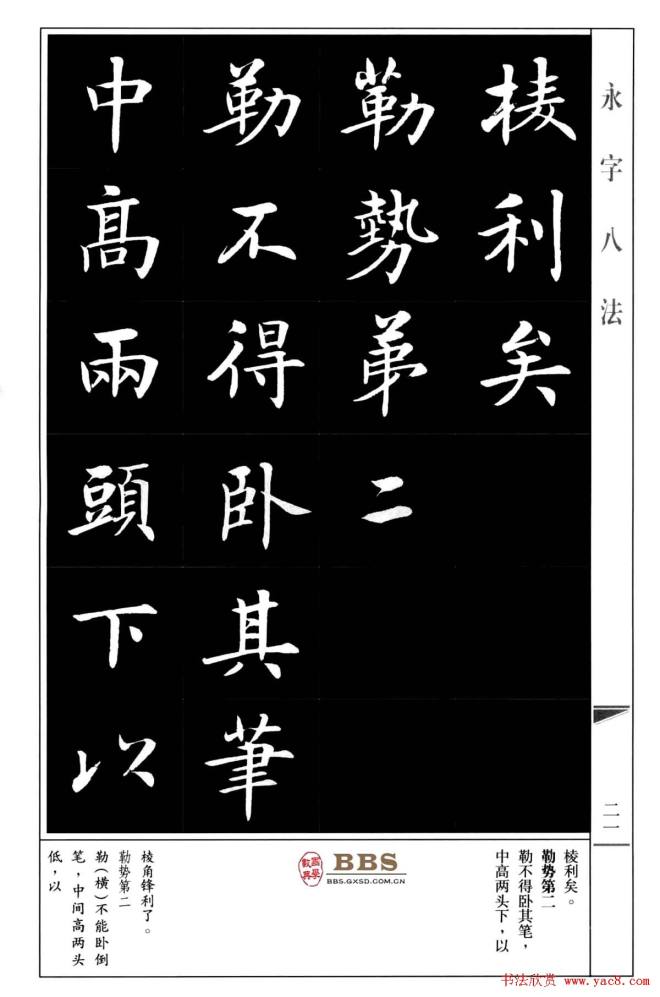 永字八法
棱利矣
勒勢第二
勒不得卧其筆
中高兩頭下以
二一
棱利矣。
勒势第二
勒不得卧其笔，
中高两头下，以
國學數典
BBS
BBS.GXSD.COM.CN
棱角锋利了。
勒势第二
勒（横）不能卧倒
笔，中间高两头
低，以
书法欣赏 www.yac8.com